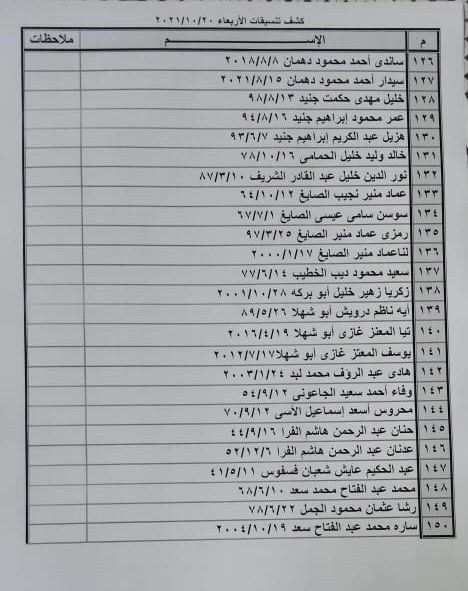 كشف تنسيقات الأربعاء ٢٠٢١/١٠/٢٠
م الإســـــم ملاحظات
١٢٦ ساندى أحمد محمود دهمان ٢٠١٨/٨/٨
١٢٧ سيدار أحمد محمود دهمان ٢٠٢١/٨/١٥
١٢٨ خليل مهدى حكمت جنيد ٩٨/٨/١٣
١٢٩ عمر محمود إبراهيم جنيد ٩٤/٨/١٦
١٣٠ هزيل عبد الكريم إبراهيم جنيد ٩٣/٦/٧
١٣١ خالد وليد خليل الحمامى ٧٨/١٠/١٦
١٣٢ نور الدين خليل عبد القادر الشريف ٨٧/٣/١٠
١٣٣ عماد منير نجيب الصايغ ٦٤/١٠/١٢
١٣٤ سوسن سامى عيسى الصايغ ٦٧/٧/١
١٣٥ رمزى عماد منير الصايغ ٩٧/٣/٢٥
١٣٦ لناعماد منير الصايغ ٢٠٠٠/١/١٧
١٣٧ سعيد محمود ديب الخطيب ٧٧/٦/١٤
١٣٨ زكريا زهير خليل أبو بركه ٢٠٠١/١٠/٢٨
١٣٩ أيه ناظم درويش أبو شهلا ٨٩/٥/٢٦
١٤٠ تيا المعتز غازى أبو شهلا ٢٠١٦/٤/١٩
١٤١ يوسف المعتز غازى أبو شهلا٢٠١٢/٧/١٧
١٤٢ هادى عبد الرؤف محمد لبد ٢٠٠٣/١/٢٤
١٤٣ وفاء أحمد سعيد الجاعونى ٥٤/٩/١٢
١٤٤ محروس أسعد إسماعيل الأسى ٧٠/٩/١٢
١٤٥ حنان عبد الرحمن هاشم الفرا ٤٤/٩/١٦
١٤٦ عدنان عبد الرحمن هاشم الفرا ٥٢/١٢/٦
١٤٧ عبد الحكيم عايش شعبان فسفوس ٤١/٥/١١
١٤٨ محمد عبد الفتاح محمد سعد ٦٨/٦/١٠
١٤٩ رشا عثمان محمود الجمل ٧٨/٦/٢٢
١٥٠ ساره محمد عبد الفتاح سعد ٢٠٠٤/١٠/١٩